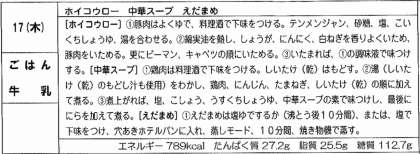 17(木)
ごはん
牛乳
ホイコウロー 中華スープ えだまめ
[ホイコウロー]①豚肉はよくゆで、料理酒で下味をつける。テンメンジャン、砂糖、塩、こい
くちしょうゆ、湯を合わせる。②綿実油を熱し、しょうが、にんにく、白ねぎを香りよくいため、
豚肉をいためる。更にピーマン、キャベツの順にいためる。③いたまれば、①の調味液で味つけ
する。[中華スープ]①鶏肉は料理酒で下味をつける。しいたけ(乾)はもどす。②湯(しいた
け(乾)のもどし汁も使用)をわかし、鶏肉、にんじん、たまねぎ、しいたけ(乾)の順に加え
て煮る。③煮上がれば、塩、こしょう、うすくちしょうゆ、中華スープの素で味つけし、最後
ににらを加えて煮る。[えだまめ]①えだまめは塩ゆでするか(沸とう後10分間)、または、塩で
下味をつけ、穴あきホテルパンに入れ、蒸しモード、10分間、焼き物機で蒸す。
エネルギー 789kcal たんぱく質 27.2g 脂質 25.5g 糖質 112.7g